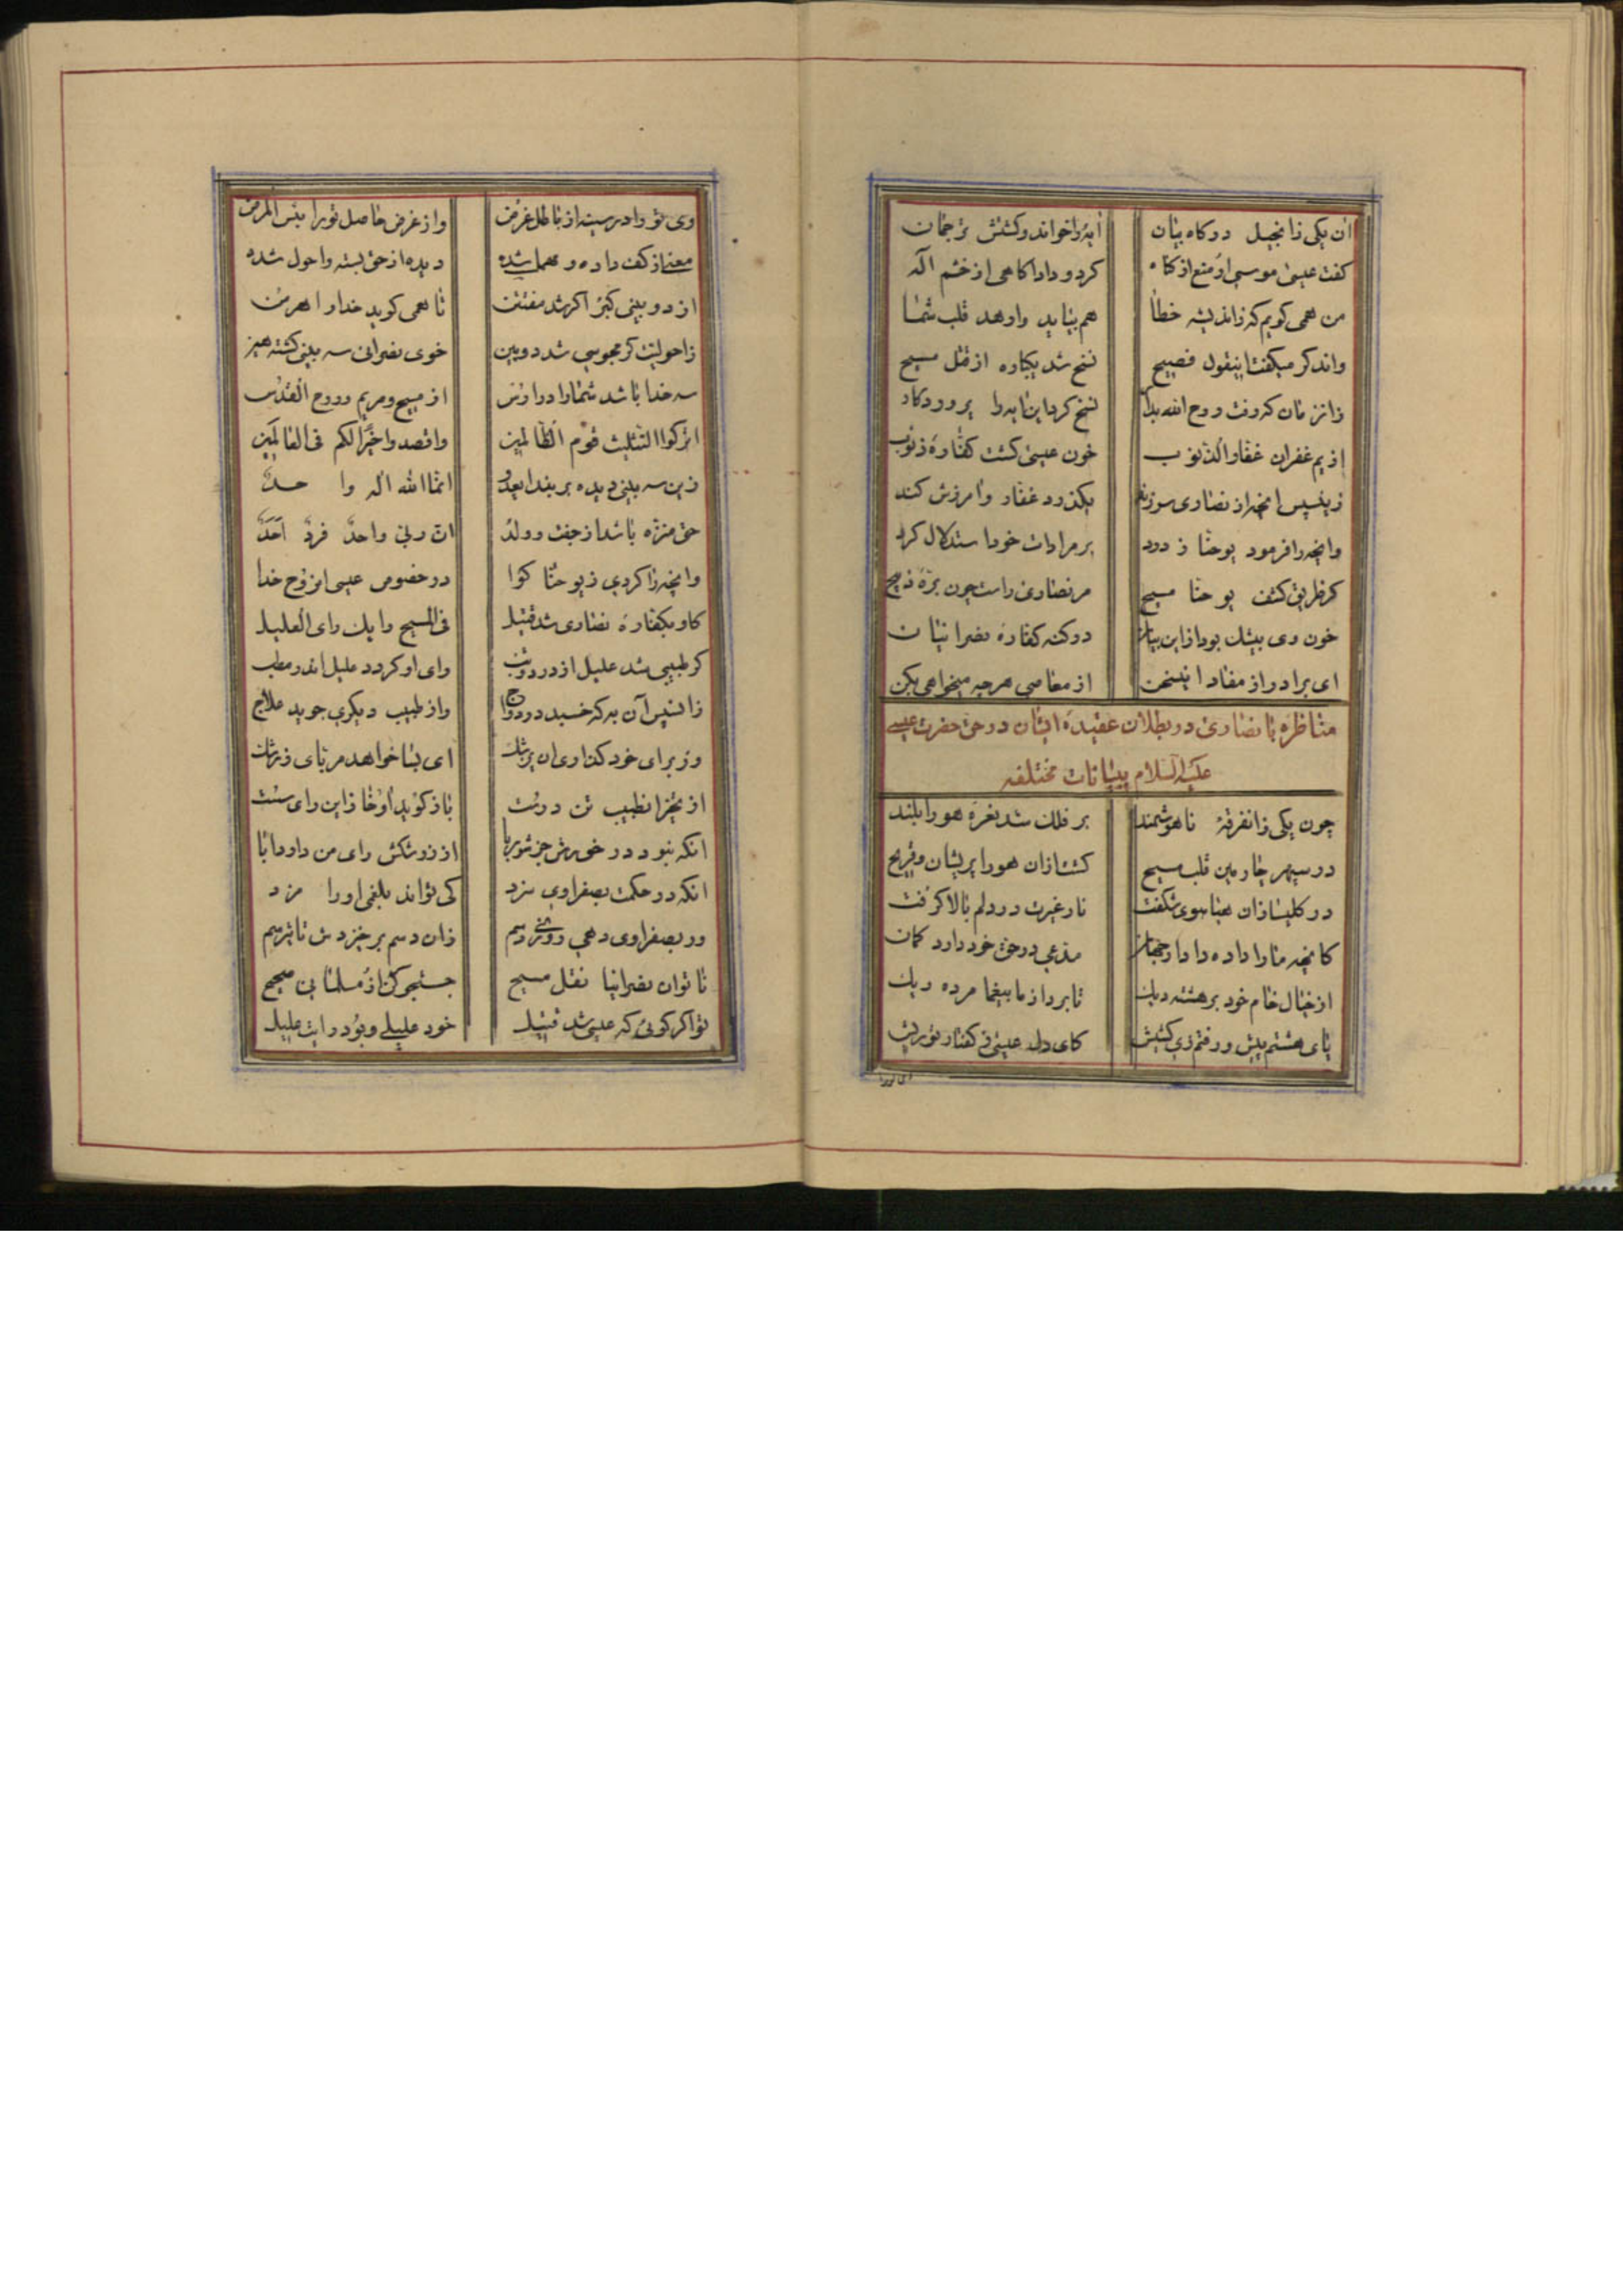 ان یکی زانجیل در کاه بیان ایه را خواند و کشتش ترجمان
کفت عیسی موسی ار منع از کناه کرد و داد اکاهی از خشم اله
من همی کویم که زاندیشه خطا هم بباید وارهد قلب شما
واند کر میکفت اینقول فصیح نسخ شد یکباره از قتل مسیح
زانزمان که رفت روح الله نسخ کرد این ایه را پروردکار
از یم غفران غفار الذنوب خون عیسی کشت کفارهٔ ذنوب
زینسپس انچه از نصاری سر زند بکذرد غفار و امرزش کند
وانچه را فرمود یوحنا ز درد بر مرادات خود استدلال کرد
کز طریق کشف یوحنا مسیح مر نصاری راست چون برهٔ ذبیح
خون وی بیشک بود از این بیان در کنه کفارهٔ نصرانیان
ای برادر از مفاد اینسخن از معاصی هر چه میخواهی بکن
مناظره با نصاری در بطلان عقیدهٔ ایشان در حق حضرت عیسی
علیه السلام ببیانات مختلفه
چون یکی زانفرقهٔ ناهوشمند بر فلک شد نعرهٔ هورا بلند
در سپهر چارمین قلب مسیح کشت ازان هورا پریشان و قریح
در کلیسا زان هیاهوی شکفت نار غیرت در دلم بالا کرفت
کانچه مارا داده دادار جهان مدعی در حق خود دارد کمان
از خیال خام خود بر هشته دیک تا برد از ما بیغما مرده ریک
پای هشتم پیش و رفتم زی کشیش کای دل عیسی ز کفتار تو ریش
وی تو را در سینه از باطل غرض واز غرض حاصل تو را بئس المرض
معنی از کف داده و مهمل شده دیده از حق بسته و احول شده
از دو بینی کبر اکر شد مفتتن تا همی کوید خدا و اهرمن
زاحولیت کر مجوسی شد دوبین خوی نصرانی سه بینی کشته هین
سه خدا باشد شما را در اوتس از مسیح و مریم و روح القدس
اترکوا التثلیث قوم الظالمین واقصدوا خیرا لکم فی العالمین
زین سه بینی دیده بر بند انما الله اله واحد
حق منزه باشد از جفت و ولد ان ربی واحد فرد احد
وانچه را کردی ز یوحنا کوا در خصوص عیسی ان روح خدا
کاو بکفارهٔ نصاری شد قتیل فی المسیح رایک رای العلیل
کر طبیبی شد علیل از درد وتب وای او کردد علیل اندر مطب
زانسپس آن به که خسبد در دواج واز طبیب دیکری جوید علاج
ور برای خود کند اوی ان پزشک ای بسا خواهد مربای زرشک
از تجزا نطبیب تن درست باز کوید اوخا زاین رای سست
انکه نبود در خورش جز شوربا از زرشکش رای من دارد ابا
انکه در حکمت بصفراوی سزد کی تواند بلغمی اورا مزد
ور بصفراوی دهی روغن زان دسم بر خیزدش
تا توان نصرانیا نقل مسیح جستجو کن از مسلمانی صحیح
تو اکر کوئی که عیسی شد قتیل خود علیلی و بود رایت علیل